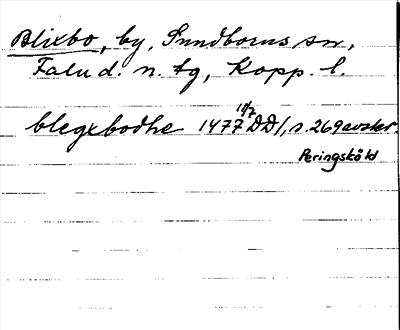 Blixbo, by, Sundborns sn,
Falu d. n. tg, Kopp. l.
blegxbodhe 1477 11/7 DD 1, s. 269 avskr.
Peringsköld